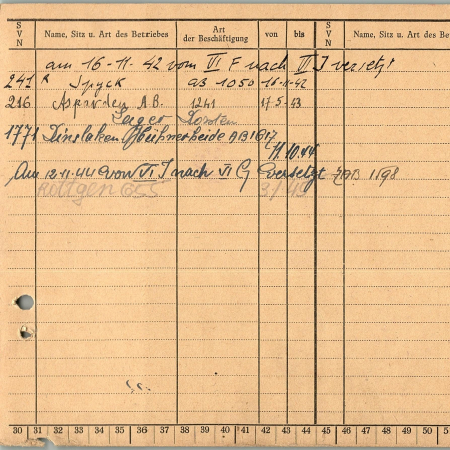 S V N Name, Sitz u. Art des Betriebes Art der Beschäftigung von bis S V N Name, Sitz u. Art des Be
am 16-11-42 vom VI F nach VI J versetzt
241 R Spyck AB 1050 16-11-42
216 Asperden A.B. 1241 17-5-43
Lager Dorsten
1771 Dinslaken Hühnerheide AB 1617
11.10.44
Am 12.11.44 von VI J nach VI G versetzt AB 1198
Röttgen GSS 3/45
30 31 32 33 34 35 36 37 38 39 40 41 42 43 44 45 46 47 48 49 50 5